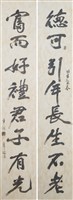 德可引年長生不老
富而好禮君子有光